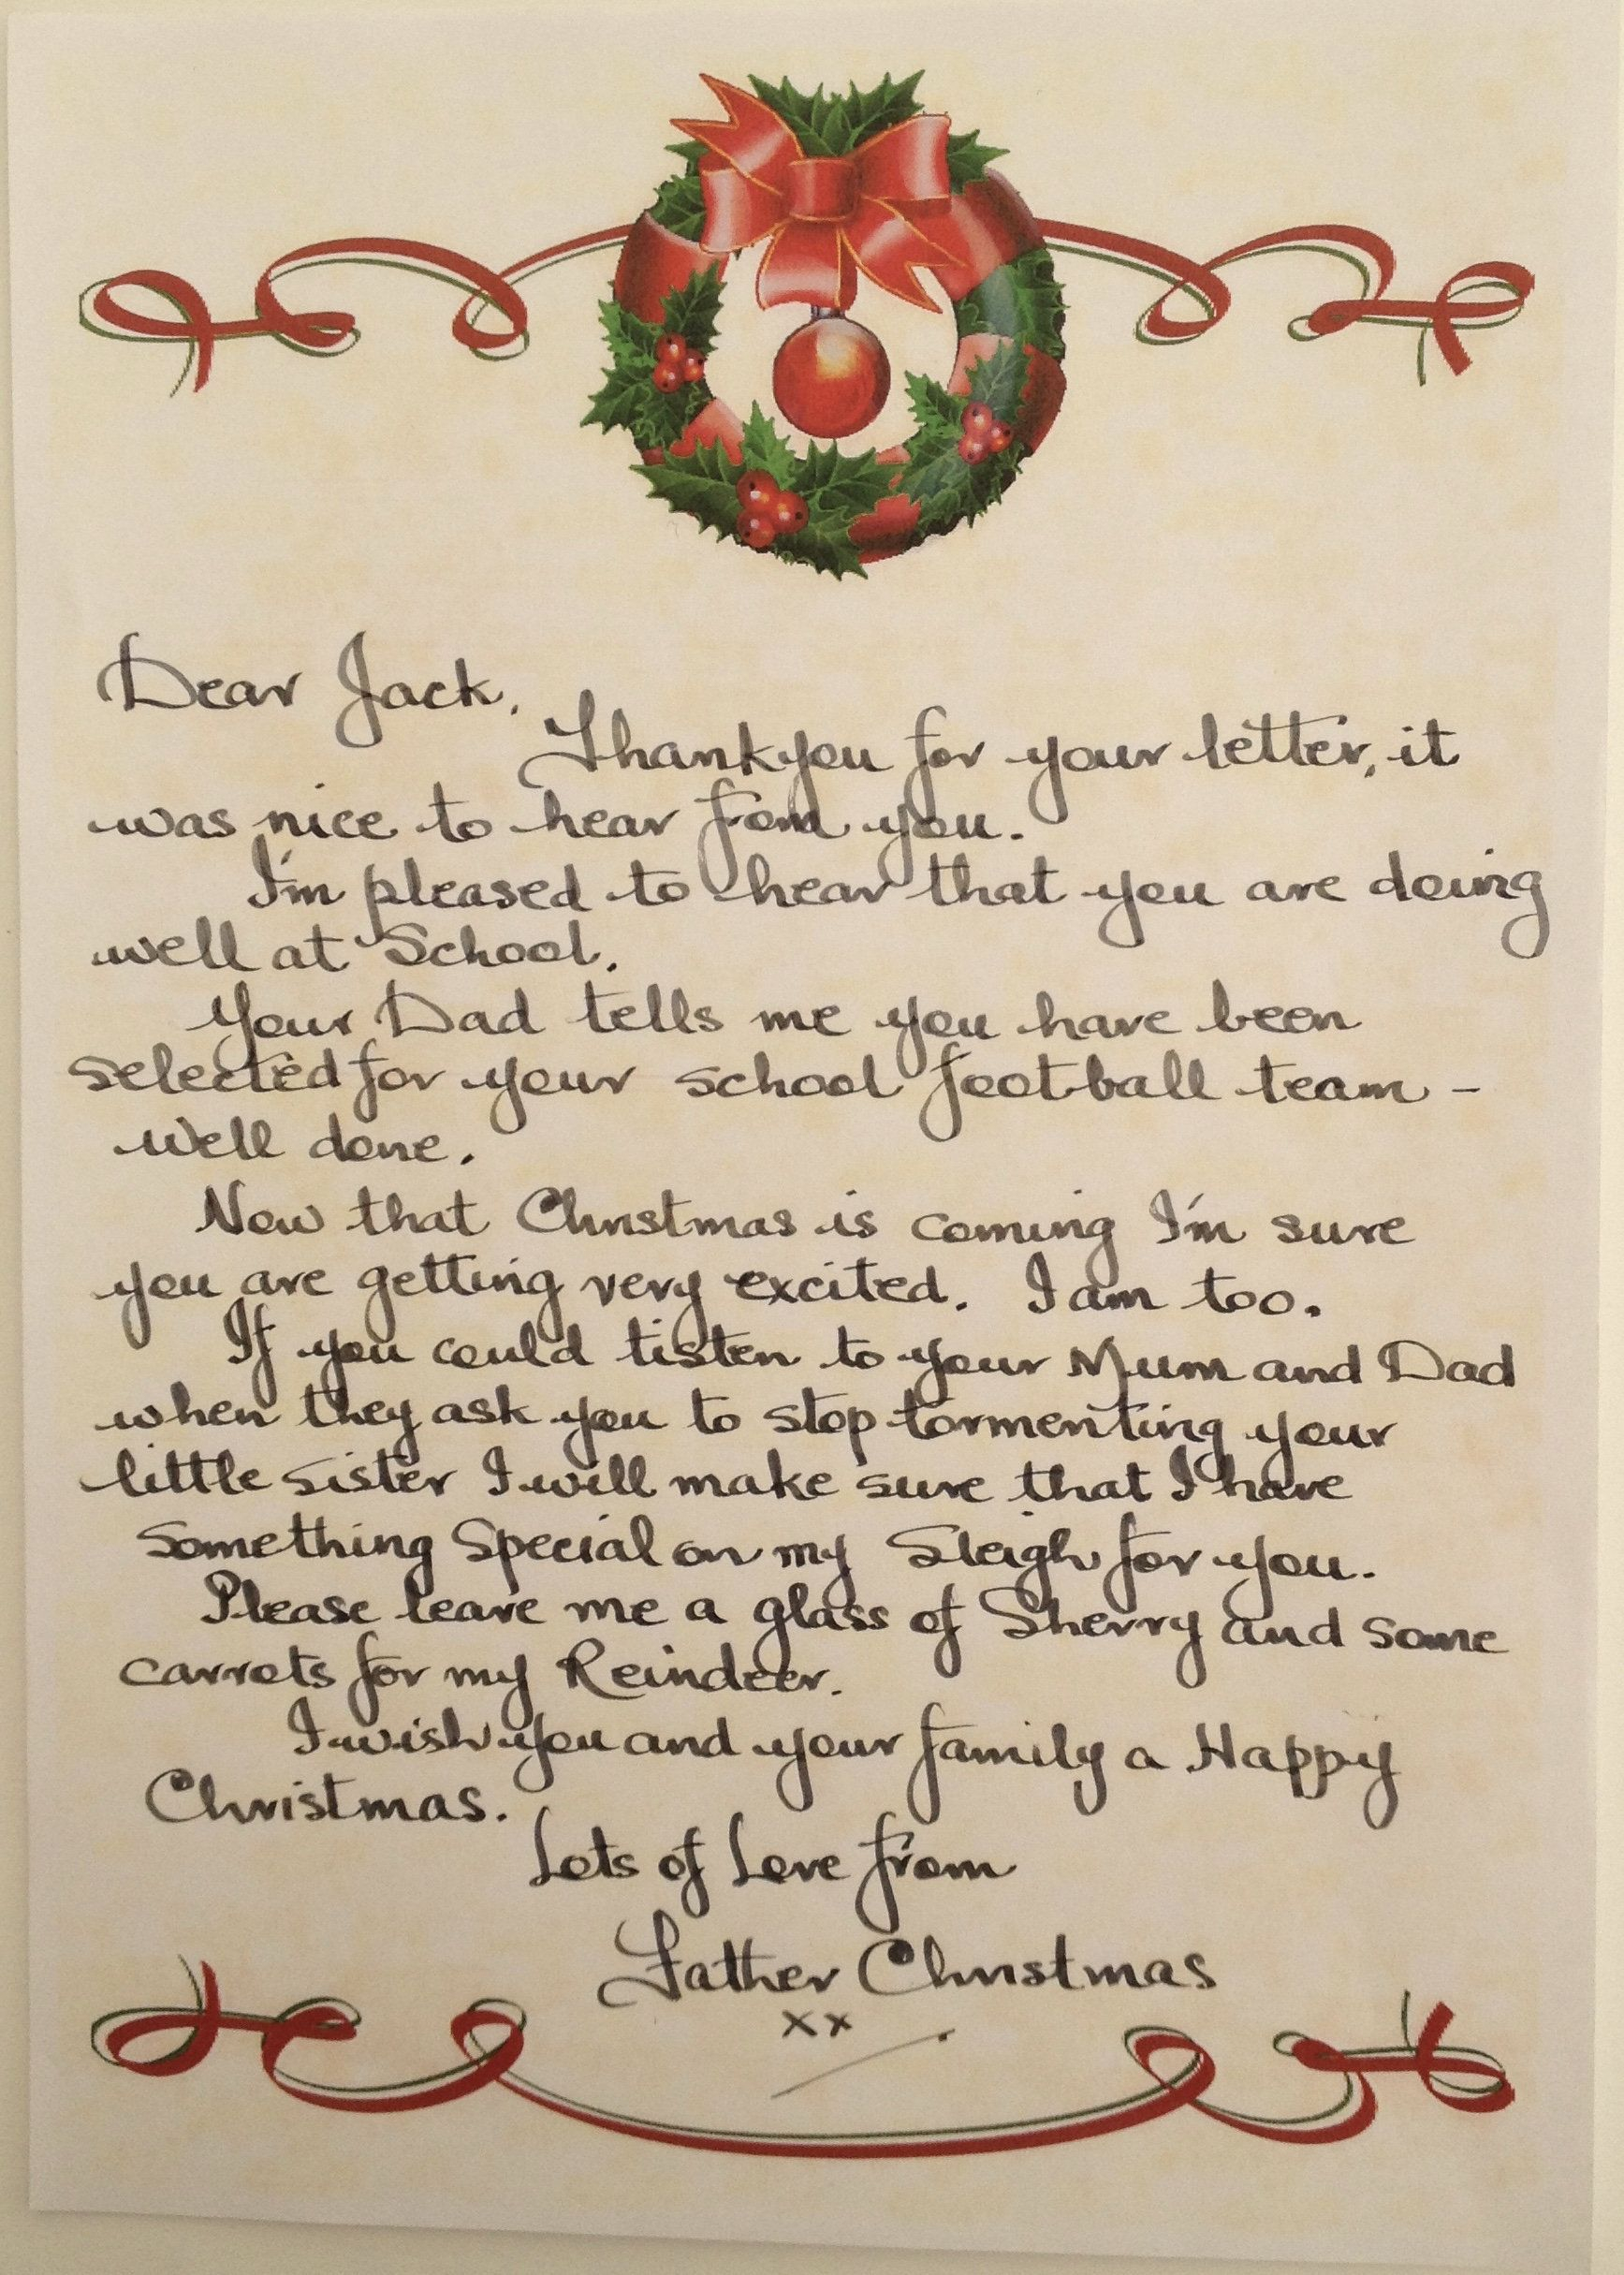 Dear Jack,
Thankyou for your letter, it
was nice to hear from you.
I'm pleased to hear that you are doing
well at School.
Your Dad tells me you have been
selected for your school football team -
well done.
Now that Christmas is coming I'm sure
you are getting very excited. I am too.
If you could listen to your Mum and Dad
when they ask you to stop tormenting your
little sister I will make sure that I have
Something Special on my Sleigh for you.
Please leave me a glass of Sherry and some
carrots for my Reindeer.
I wish you and your family a Happy
Christmas.
Lots of Love from
Father Christmas
xx